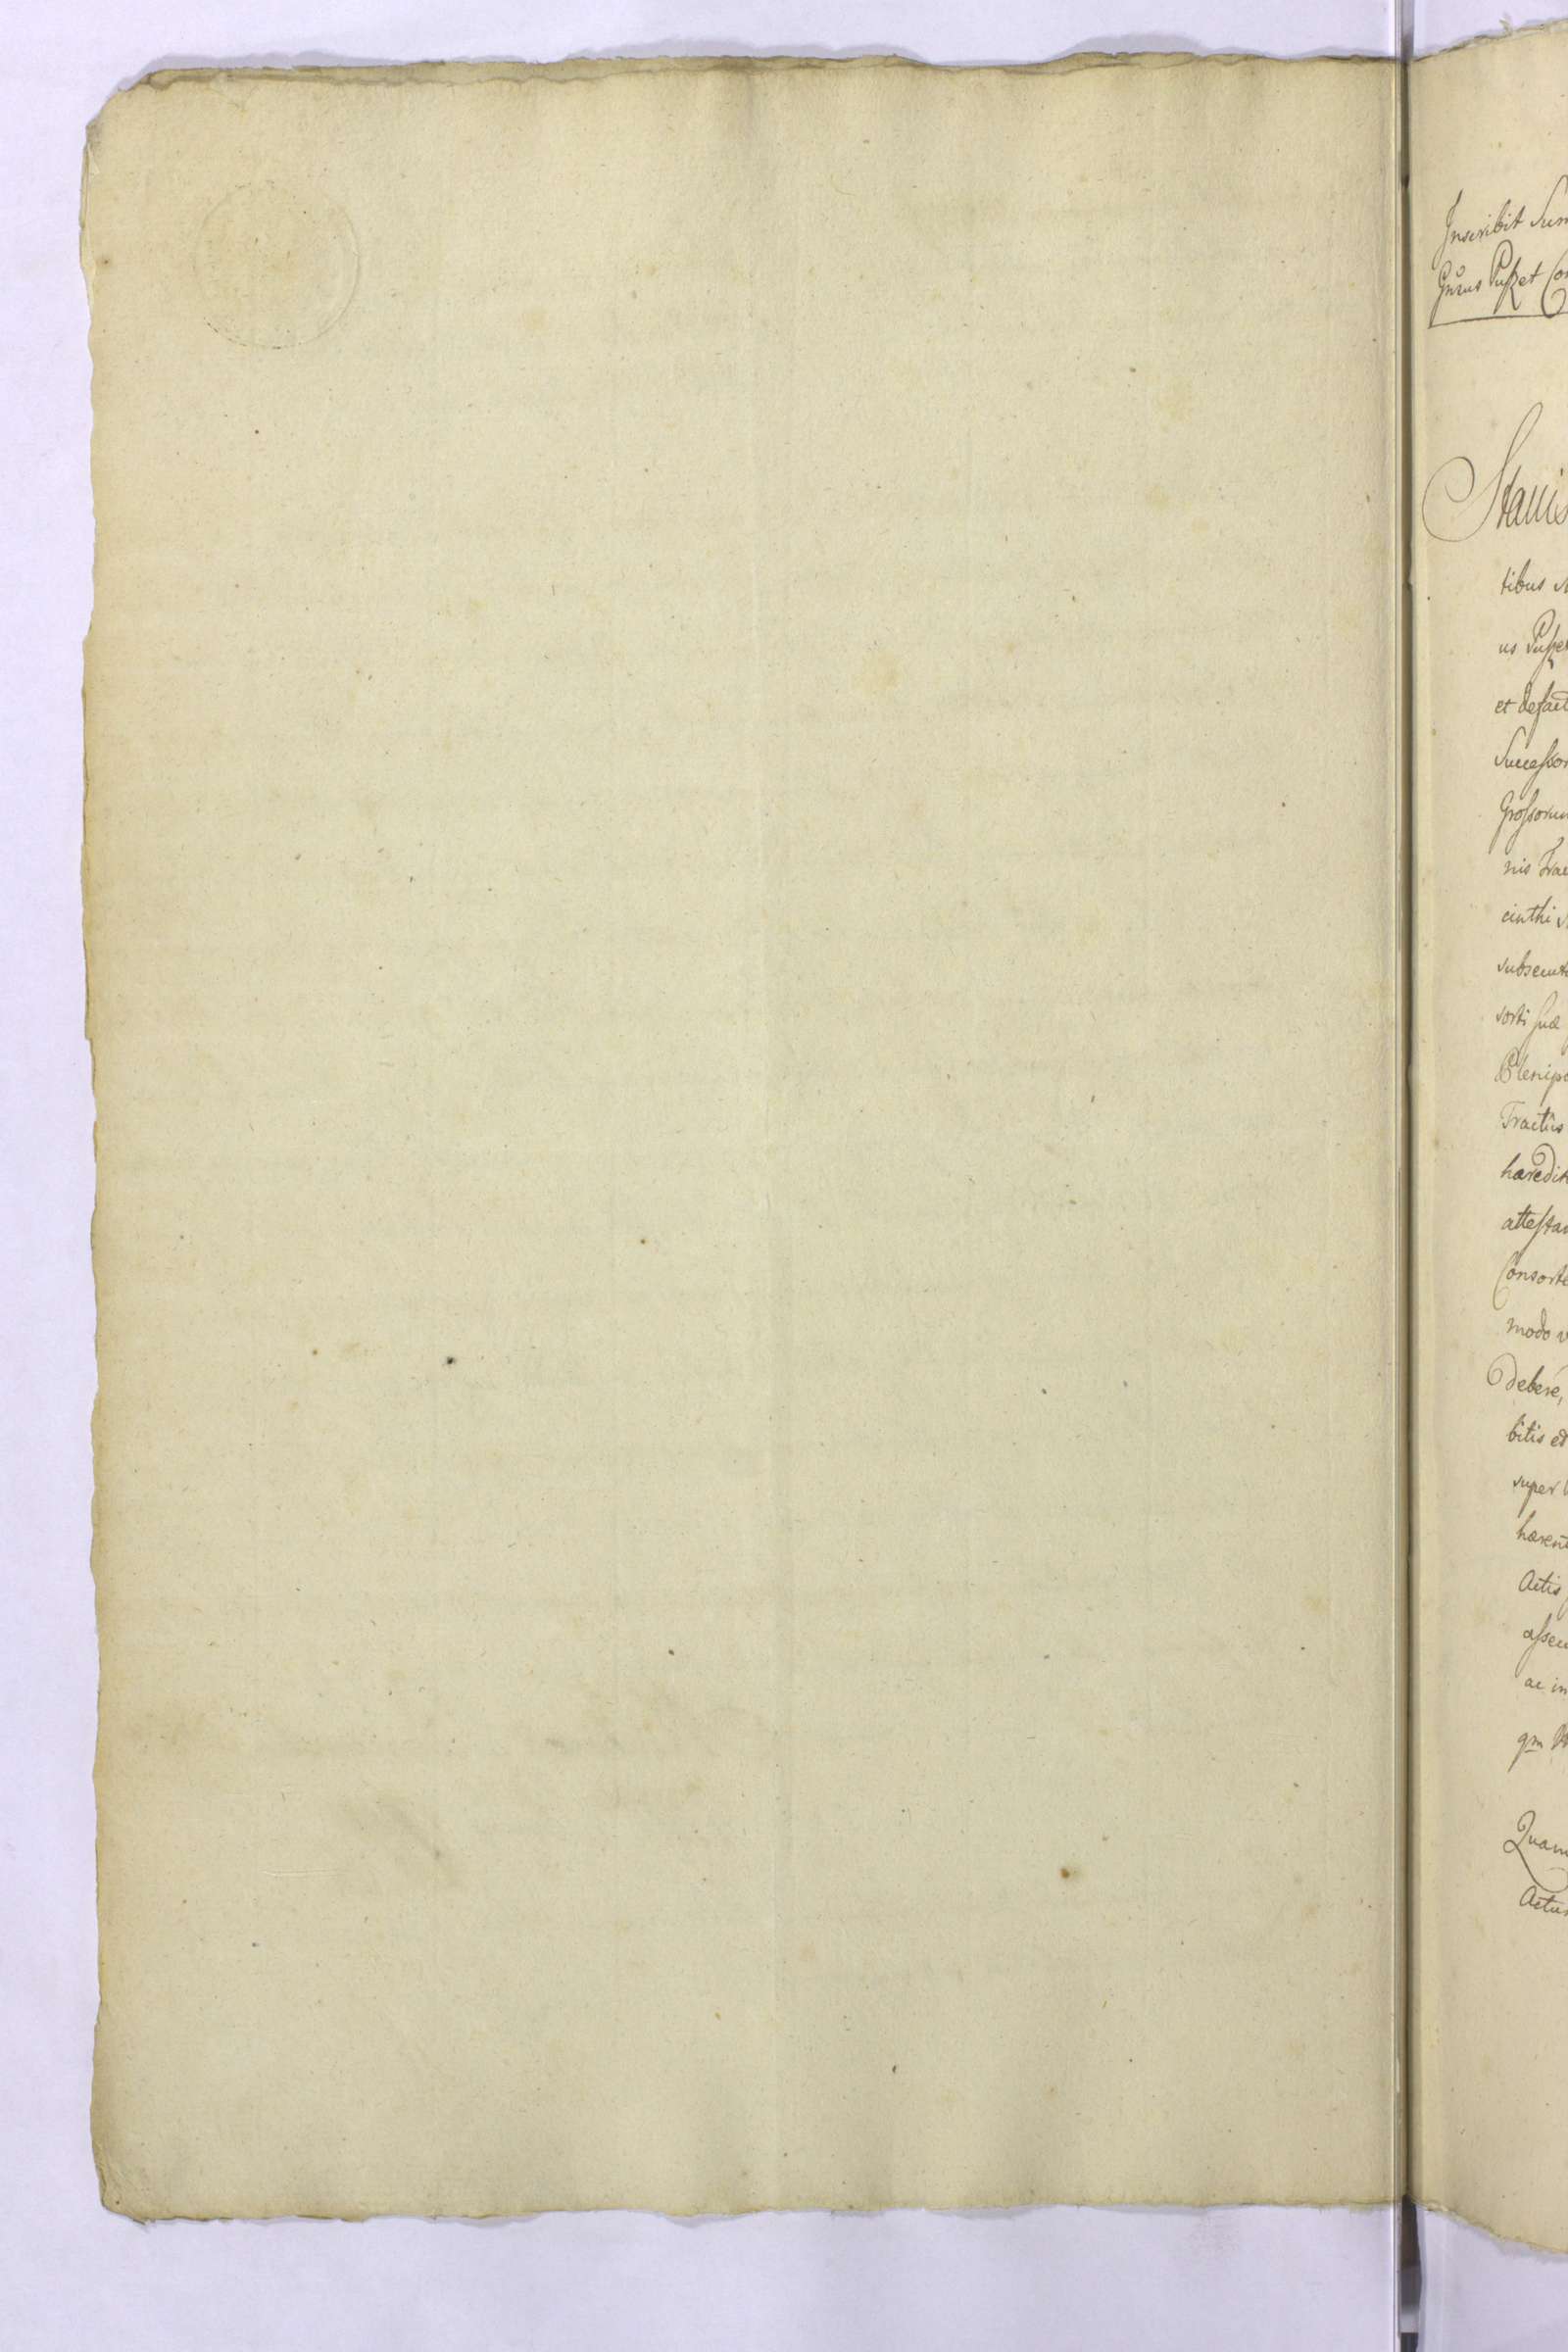 Inscribit Sum
Gnrus Puszet Con
Stanis
tibus
us Puszet
et defact
Successor
Grossorum
nis Trac
cinthi
subsecut
sorti suæ
Plenipo
Tractûs
hæredit
attestan
Consorte
modo v
debere,
bitis et
super
hærent
Actis
assecu
ac in
qm
Quam
Actus